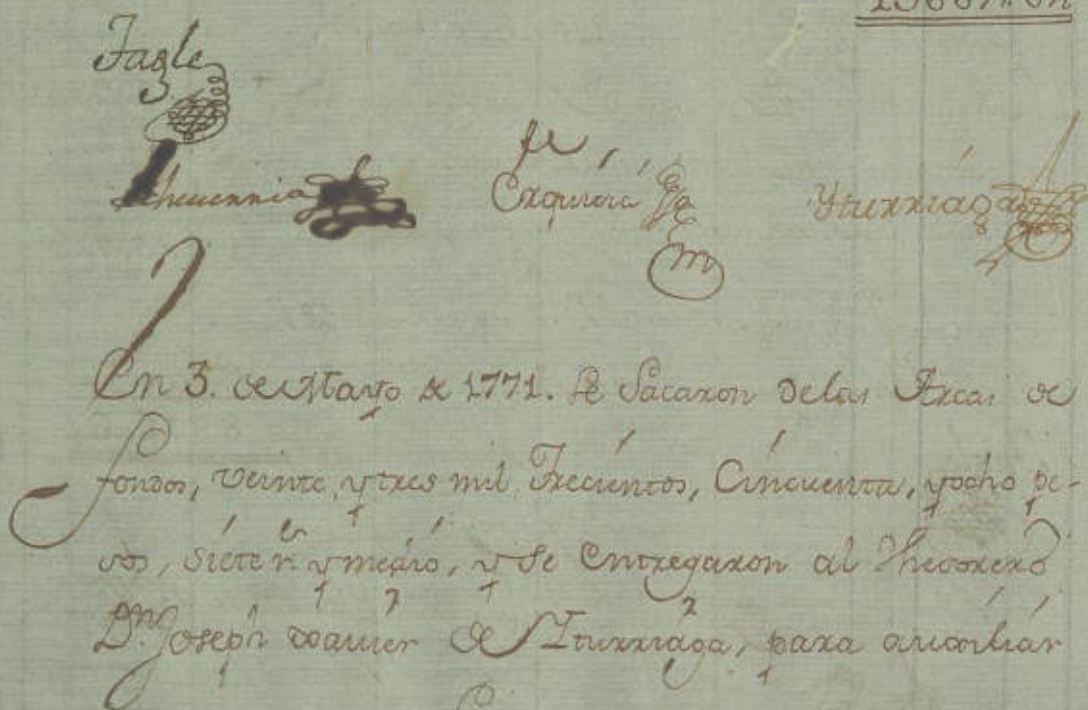 Tagle
Echeverria fr Exquivia Yturriaga
En 3. de Mayo de 1771. Se Sacaron de las Arcas de
fondos, Veinte, y tres mil, Trecientos, Cincuenta, y ocho pe-
sos, siete rs. y medio, y se entregaron al Thesorero
Dn. Joseph Xavier de Iturriaga, para auxiliar